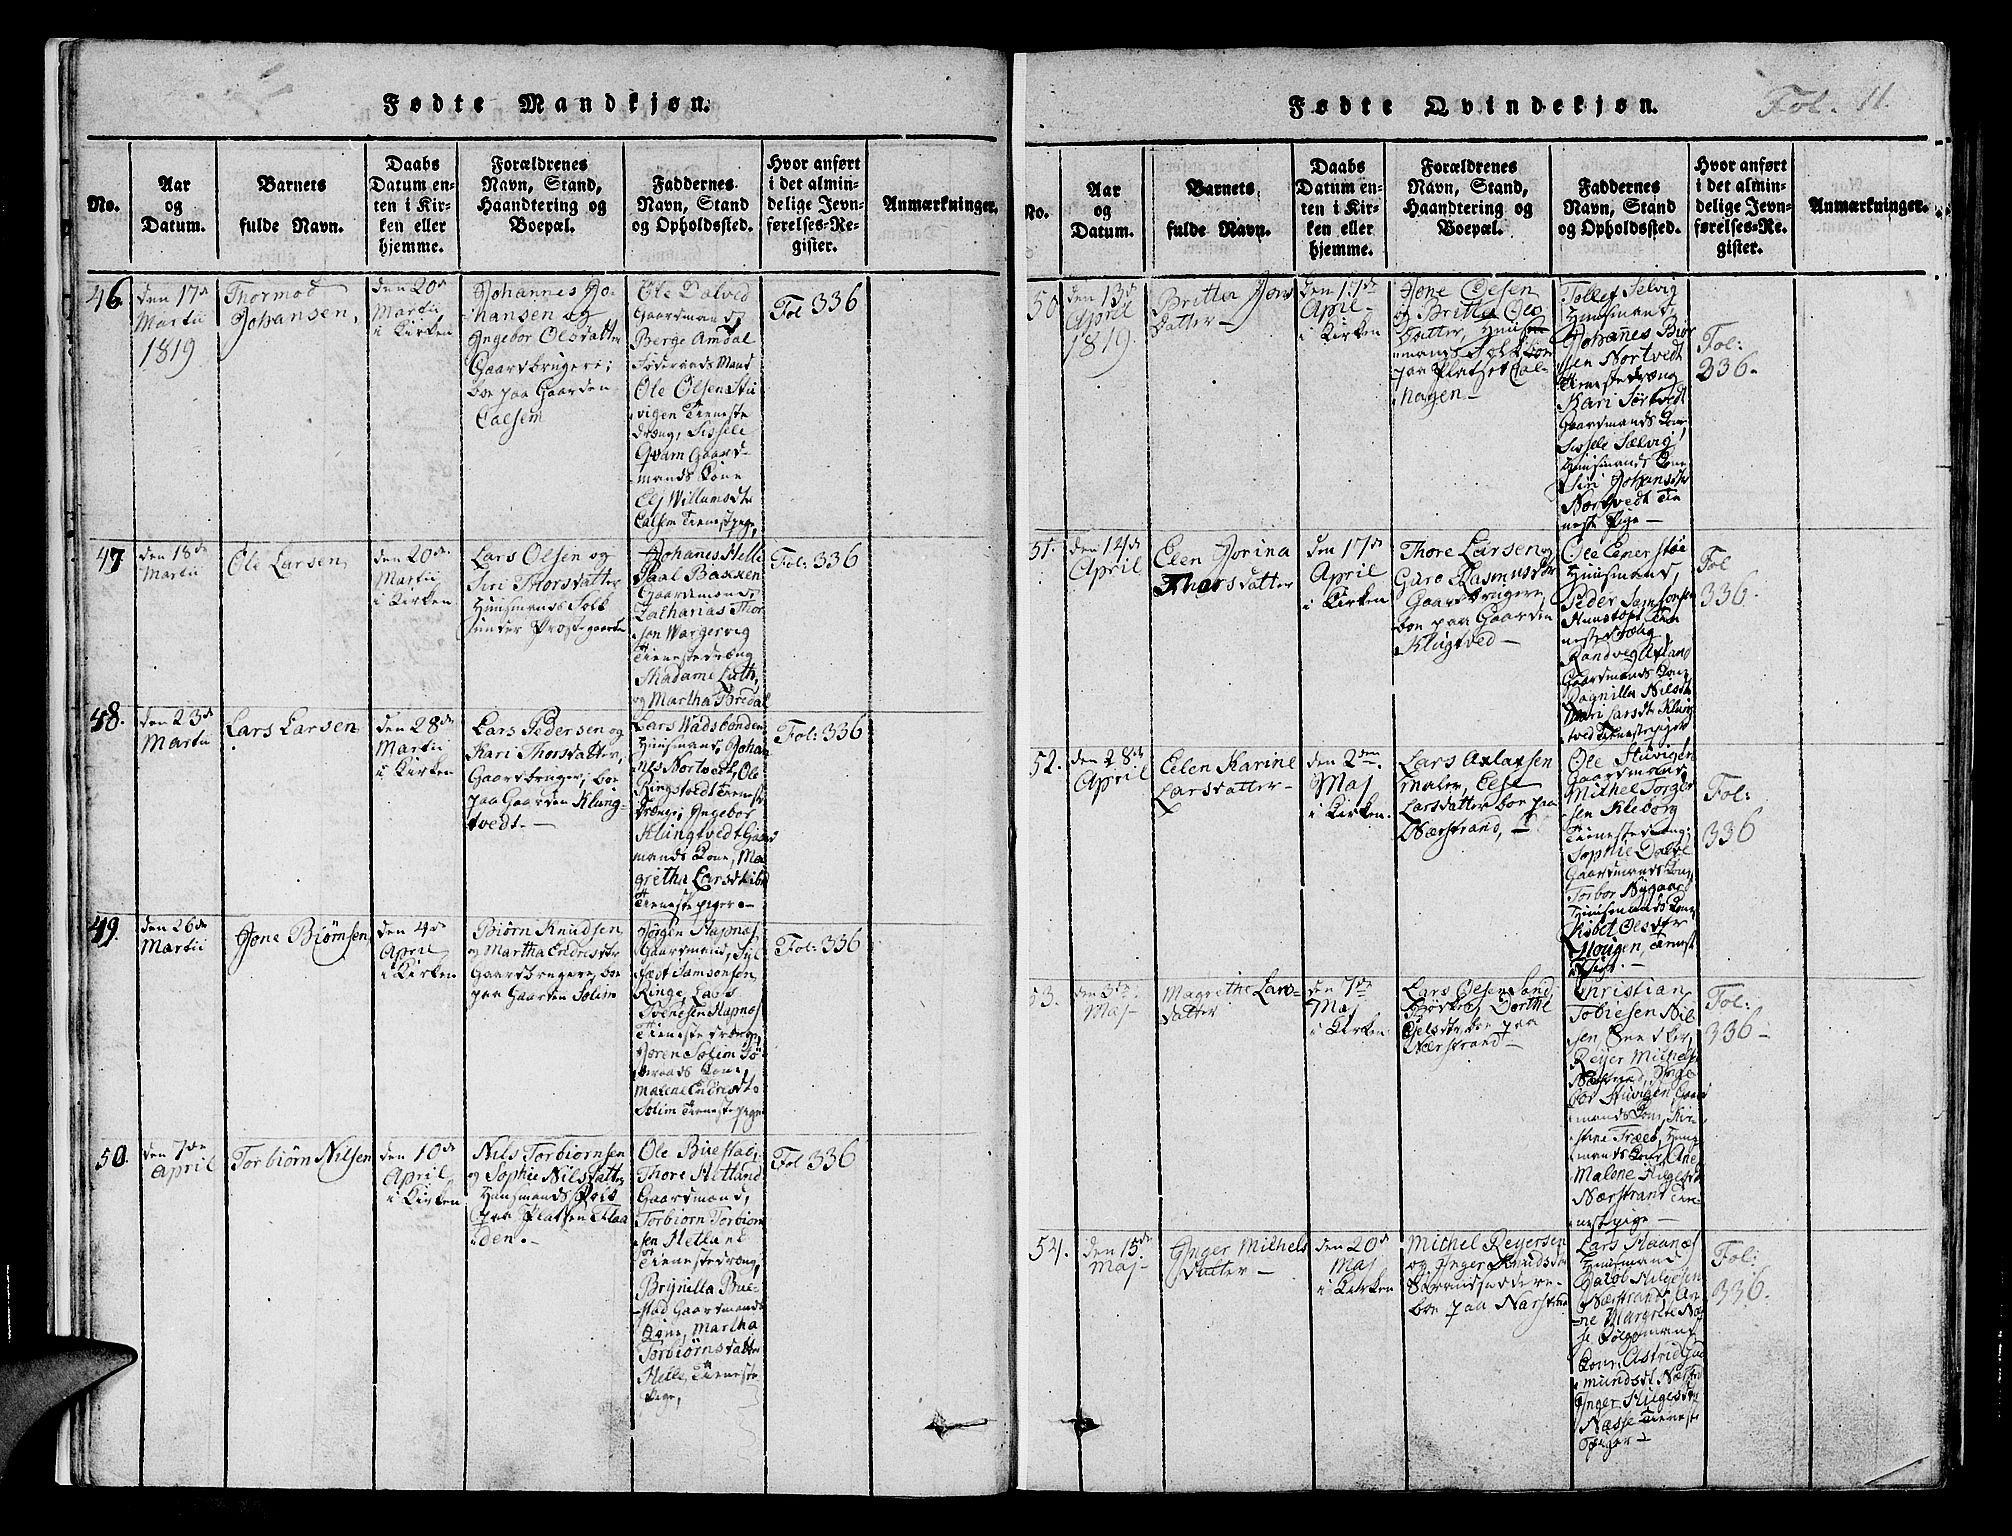 Fødte Mandkjøn.
No.
Aar
og
Datum.
Barnets
fulde Navn.
Daabs
Datum en-
ten i Kir-
ken eller
hjemme.
Forældrenes
Navn, Stand,
Haandtering og
Boepæl.
Faddernes
Navn, Stand
og Opholdssted.
Hvor anført
i det almin-
delige Jevn-
førelses-Re-
gister.
Anmærkninger.
46
den 17de
Martii
1819
Thormod
Johansen,
den 20de
Martii
i Kirken
Johannes Jo-
hansen og
Ingebor Olsdatter
Gaardbrugere;
boe paa Gaarden
Ole Dalved
Gaardmand,
Berge Amdal
Føderaads Mand
Ole Olsen Stu
vigen Tieneste
dræng, Sissele
Qvam Gaard-
mands Kone
Tienestepige,
Fol 336
47
den 18de
Martii
Ole Larsen
den 20de
Martii
i Kirken
Lars Olsen og
Siri Thorsdatter
Huusmands Folk
under Præstegaarden
Johanes Helle
Gaardmænd,
Zathanas Thor
sen Wargervig
Tienestedræng
Madame Luth,
og Martha Bredal
Fol: 336
48.
den 23de
Martii
Lars Larsen
den 28de
Martii
i Kirken
Lars Pedersen og
Kari Thorsdatter,
Gaardbruger, boe
paa Gaarden Klung-
tvedt.-
Lars Wadsbonden
Huusmand, Johan
nes Nortvedt, Ole
Ringstvedt Tieneste
Drænge, Ingebor
Klungtvedt Gaard
mands Kone, Mar
gretha Larsdt
Tienestepiger.-
Fol: 336
49.
den 26de
Martii
Jone Biørnsen
den 4de
April
i Kirken
Biørn Knudsen
og Martha Endresdtr
Gaardbrugere, boe
paa Gaarden Solim
Jørgen Hapnæs
Gaardmand, Syl
fæst Samsonsen
Ringe, Lars
Svenesen Hapnæs
Tienestedrænge,
Joren Solim Fø
deraads Kone,
Malene Endresdtr
Solim Tienestepige
Fol: 336
50.
den 7de
April
Torbiørn Nilsen
den 10de
April
i Kirken
Nils Torbiørnsen
og Sophie Nilsdatter
Huusmands Folk
paa Platsen Flaa
den.-
Ole Buestad,
Thore Hetland
Gaardmænd,
Torbiørn Torbiørn
sen Hetland
Tienestedræng,
Brynilla Bue-
stad Gaardmands
Kone, Martha
Torbiørnsdatter
Helle, Tieneste
Pige,
Fol 336
Fødte Qvindekjøn.
Fol. 11.
No.
Aar
og
Datum.
Barnets
fulde Navn.
Daabs
Datum en-
ten i Kir-
ken eller
hjemme.
Forældrenes
Navn, Stand,
Haandtering og
Boepæl.
Faddernes
Navn, Stand
og Opholdssted.
Hvor anført
i det almin-
delige Jevn-
førelses-Re-
gister.
Anmærkninger.
50
den 13de
April
1819.
Britta Jons
Datter-
den 17de
April
i Kirken
Jone Olsen
og Britta Ols
Datter, Huus-
mands Folk boe
paa Pladset
Tollef Selvig
Huusmand,
Johanes Biør
sen Nortvedt
Tienestedræng
Kari Sørtvedt
Gaardmands Kone,
Sissele Sælvig
Huusmands Kone
Siri Johansdtr
Nortvedt Tie
neste Pige-
Fol:
336.
51.
den 14de
April
Elen Jorina
Thorsdatter
den 17de
April
i Kirken
Thore Larsen og
Guro Rasmusdtr
Gaardbrugere
boe paa Gaarden
Klugtved-
Huusmand,
Peder Samsonsen
Gaardmands Kone,
Ragnilla Nilsdtr
Fol
336.
52.
den 28de
April
Elen Karine
Larsdatter-
den 2den
Maj
i Kirken.
Lars Axlaxsen
Maler, Else
Larsdatter boe paa
Nærstrand,
Ole Stuvigen
Gaardmand,
Mithel Torger
sen Kleborg
Tienestedræng;
Sophie Dalve
Gaardmands Kone,
Torbor Nygaard
Huusmands Kone
Lisbet Olsdtter
Hougen, Tieneste
Pige.-
Fol:
336
53.
den 3die
Maj-
Magrithe Lars-
datter
den 7de
Maj
i Kirken
Lars Olsen Sand,
Bødker, Dorthe
boe paa
Nærstrand-
Christian
Tobiesen Nil
sen Snedker,
Reyer Mithels
Nærstrand, Inge
bor Stuvigen Gaard
mands Kone, Kir-
stine Træet, Huus
mands Kone, Ane
Malene Helgesdtr
Nærstrand Tie-
nestepige-
Fol:
336-
54.
den 15de
Maj-
Inger Mithels
datter-
den 20de
Maj
i Kirken
Mithel Reyersen
og Inger Knudsdtr
Strandsiddere-
boe paa Narstrand
Lars Haanæs
Huusmand
Jacob Helgesen
Nærstrand, An-
ne Margrete Næs
Kone, Astrid Gud
mundsdt
Inger Helgesdtr
Næsse Tieneste
Piger-
Fol:
336.